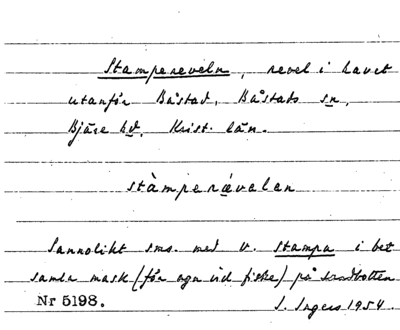 Stampereveln, revel i havet
utanför Båstad, Båstads sn,
Bjäre hd, Krist. län.
stàmperævalen
Sannolikt sms. med v. stampa i bet
samla mask (för agn vid fiske) på sandbotten
Nr 5198. S. Ingers 1954.